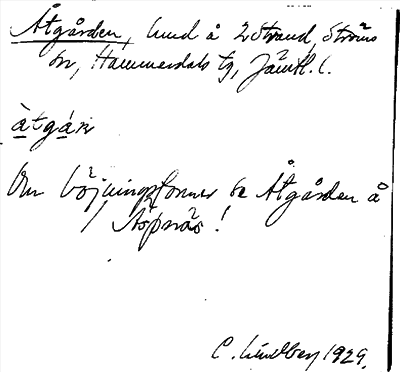 Åtgården, hmd å 2 Strand, Ströms
sn, Hammerdals tg, Jämtl. l.
àtgárn
Om böjningsformer se Åtgården å
Äspnäs!
C. Lindberg 1929.